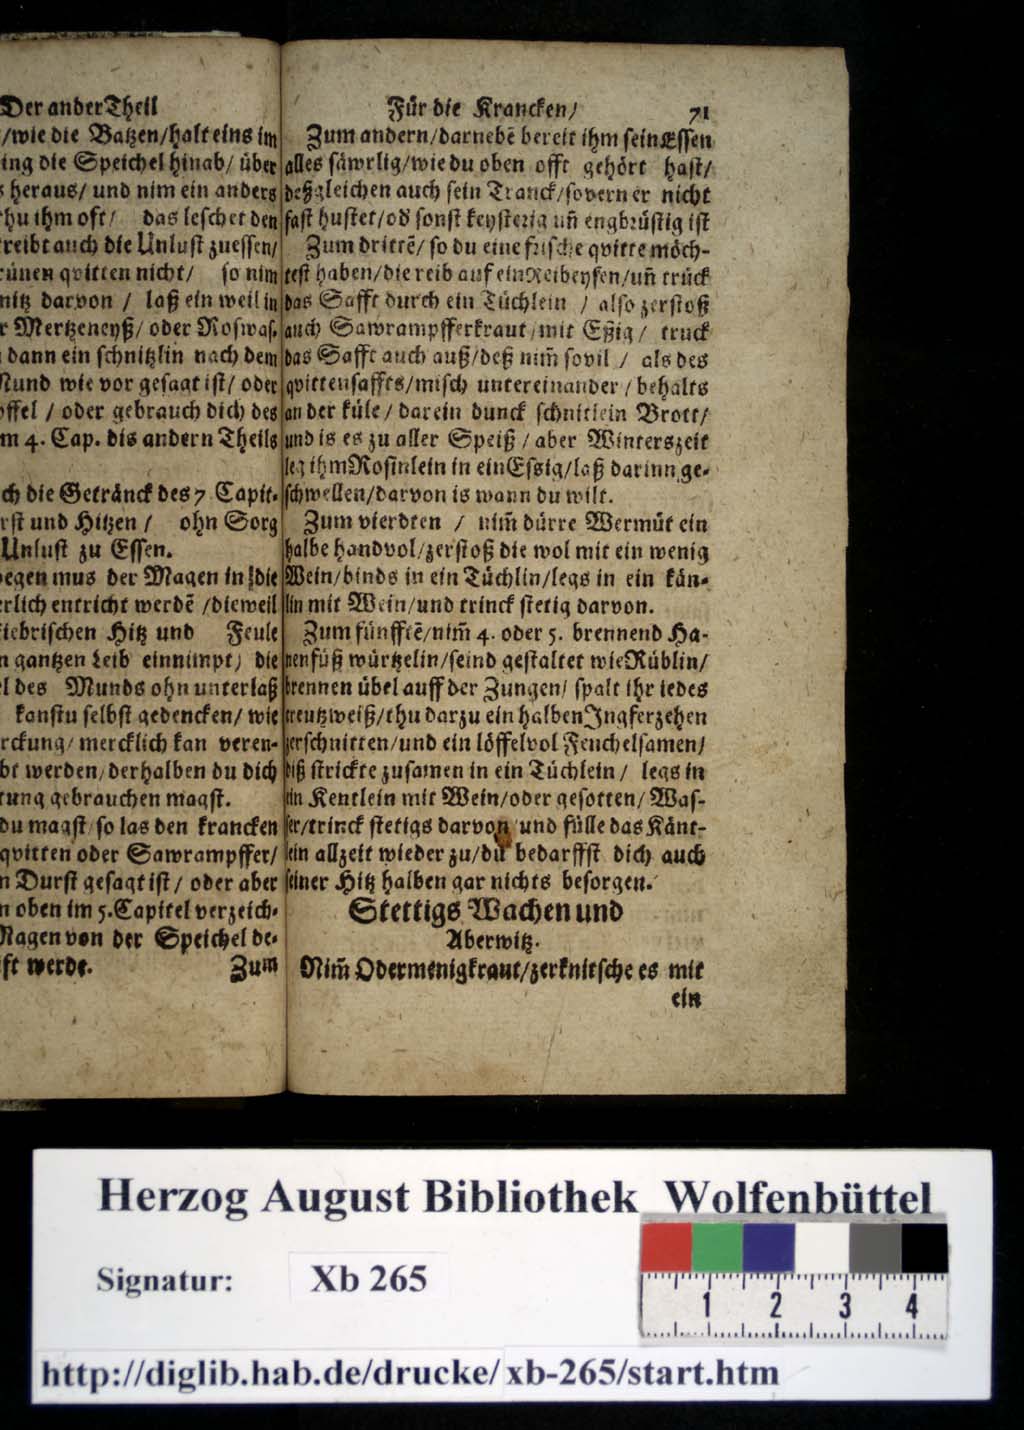 Der ander Theil
/wie die Batzen/halt eins im
ing die Speichel hinab/ über
heraus/ und nim ein anders
thu ihm oft/ das leschet den
reibt auch die Unlust zuessen/
rünen qvitten nicht/ so nim
nitz darvon / laß ein weil in
r Mertzeneyß/ oder Roswas.
dann ein schnitzlin nach dem
Mund wie vor gesagt ist/ oder
öffel / oder gebrauch dich des
m 4. Cap. dis andern Theils
ch die Getränck des 7 Capit.
rst und Hitzen / ohn Sorg
Unlust zu Essen.
egen mus der Magen in die
erlich entricht werdẽ /dieweil
iebrischen Hitz und Feule
n gantzen Leib einnimpt/ die
l des Munds ohn unterlaß
kanstu selbst gedencken/ wie
rckung/ mercklich kan veren-
bt werden/derhalben du dich
tung gebrauchen magst.
du magst/so las den krancken
qvitten oder Sawrampffer/
n Durst gesagt ist/ oder aber
n oben im 5.Capitel verzeich-
Magen von der Speichel be-
ft werde. Zum
Für die Krancken/ 71
Zum andern/darnebẽ bereit ihm sein Essen
alles säwrlig/wie du oben offt gehört hast/
deßgleichen auch sein Tranck/sovern er nicht
fast hustet/od sonst keysterig uñ engbrüstig ist
Zum drittẽ/ so du eine frische qvitte möch-
test haben/die reib auf ein Reibeysen/uñ trück
das Safft durch ein Tüchlein / also zerstoß
auch Sawrampfferkraut/mit Eßig/ truck
das Safft auch auß/deß nim̃ sovil / als des
qvittensaffts/misch untereinander / behalts
an der küle/ darein dunck schnitlein Brott/
und is es zu aller Speiß / aber Winterszeit
leg ihm Rosinlein in ein Essig/laß darinn ge-
schwellen/darvon is wann du wilt.
Zum vierdten / nim̃ dürre Wermut ein
halbe handvol/zerstoß die wol mit ein wenig
Wein/binds in ein Tüchlin/legs in ein kän-
lin mit Wein/und trinck stetig darvon.
Zum fünfftẽ/nim̃ 4. oder 5. brennend Ha-
nenfüß würtzelin/seind gestaltet wie Rüblin/
brennen übel auff der Zungen/ spalt ihr iedes
creutzweiß/thu darzu ein halben Ingferzehen
zerschnitten/und ein löffelvol Fenchelsamen/
diß strickte zusamen in ein Tüchlein / legs in
ein Kentlein mit Wein/oder gesotten/ Was-
ser/trinck stetigs darvon und fülle das Känt-
lein allzeit wieder zu/du bedarffst dich auch
seiner Hitz halben gar nichts besorgen.
Stettigs Wachen und
Aberwitz.
Nim̃ Odermenigkraut/zerknitsche es mit
ein
Herzog August Bibliothek Wolfenbüttel
Signatur: Xb 265
1 2 3 4
http://diglib.hab.de/drucke/xb-265/start.htm